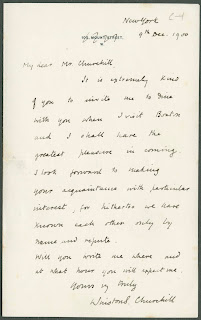 New York
9th Dec. 1900
My dear Mr. Churchill
It is extremely kind
of you to invite me to dine
with you when I visit Boston
and I shall have the
greatest pleasure in coming.
I look forward to making
your acquaintance with particular
interest, for hitherto we have
known each other only by
name and repute.
Will you write me where and
at what hour you will expect me.
Yours vy truly
Winston S. Churchill